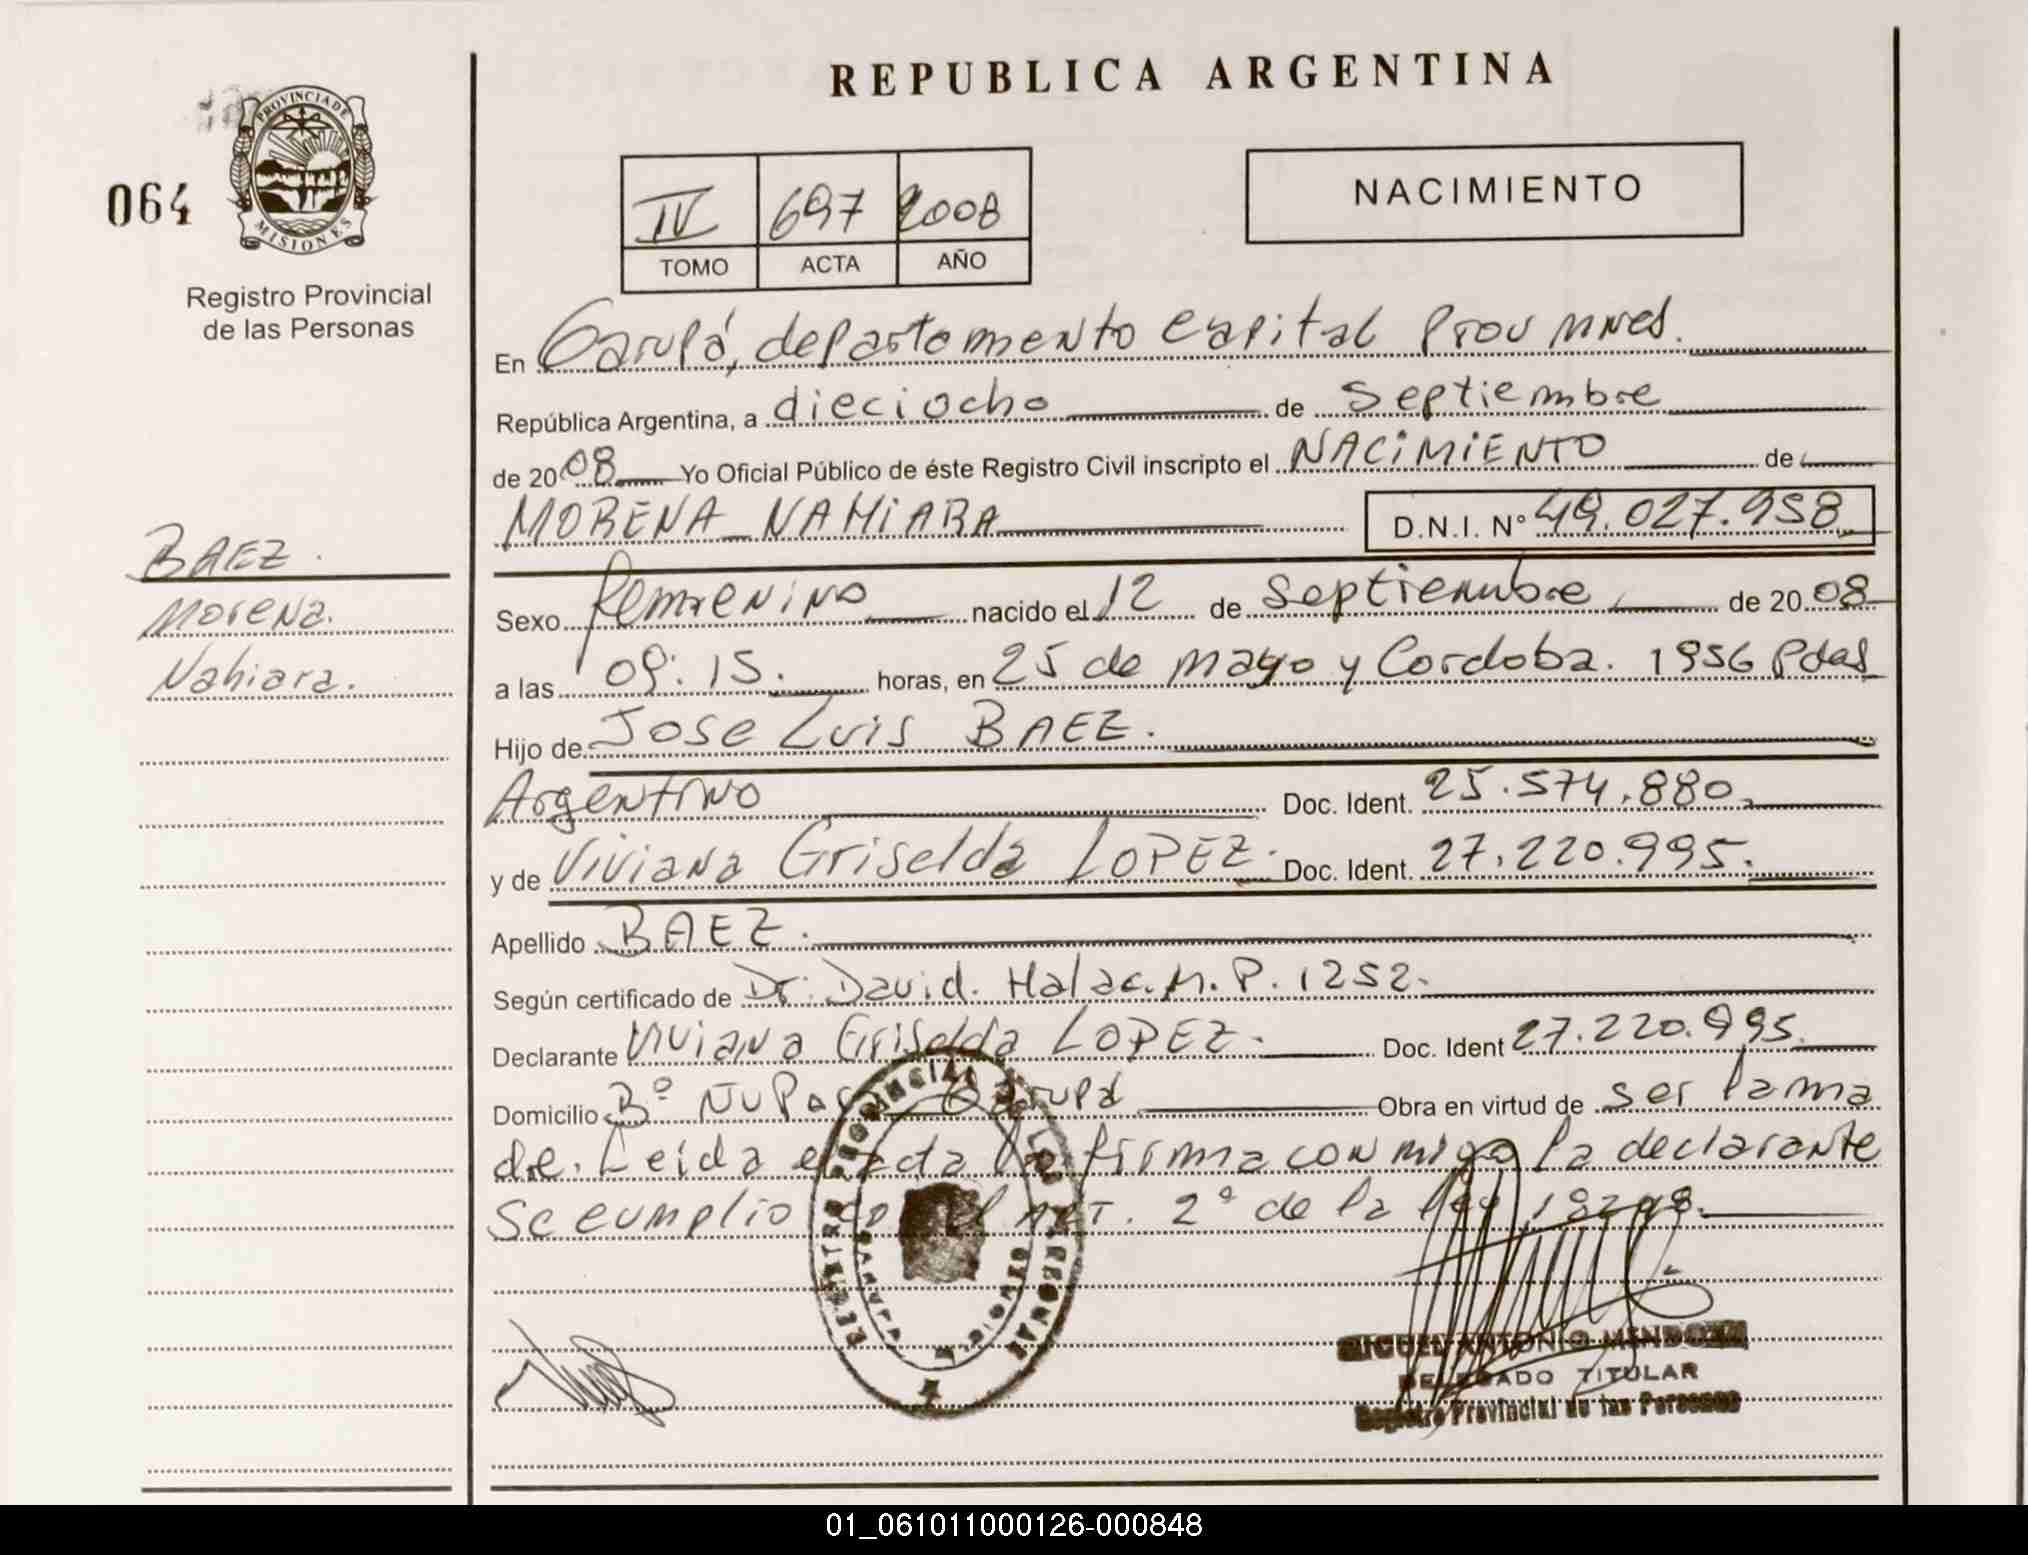 REPUBLICA ARGENTINA
PROVINCIA DE
MISIONES
064
Registro Provincial
de las Personas
IV 697 2008
TOMO ACTA AÑO
NACIMIENTO
En Garupá, departamento Capital Prov Mnes.
República Argentina, a dieciocho de Septiembre
de 2008 Yo Oficial Público de éste Registro Civil inscripto el NACIMIENTO de
MORENA NAHIARA D.N.I. N° 49.027.958
BAEZ.
Morena.
Nahiara.
Sexo femenino nacido el 12 de Septiembre de 2008
a las 09:15. horas, en 25 de mayo y Cordoba. 1956 Pdas
Hijo de Jose Luis BAEZ.
Argentino Doc. Ident. 25.574.880.
y de Viviana Griselda LOPEZ. Doc. Ident. 27.220.995.
Apellido BAEZ.
Según certificado de Dr. David. Halac. M.P. 1252.
Declarante Viviana Griselda LOPEZ. Doc. Ident 27.220.995.
Domicilio B° Garupá Obra en virtud de ser la ma
dre. Leida el acta la firma conmigo la declarante
Se cumplio con el ART. 2° de la ley
REGISTRO PROVINCIAL DE LAS PERSONAS
GARUPA
MIGUEL ANTONIO MENDOZA
DELEGADO TITULAR
Registro Provincial de las Personas
01_061011000126-000848